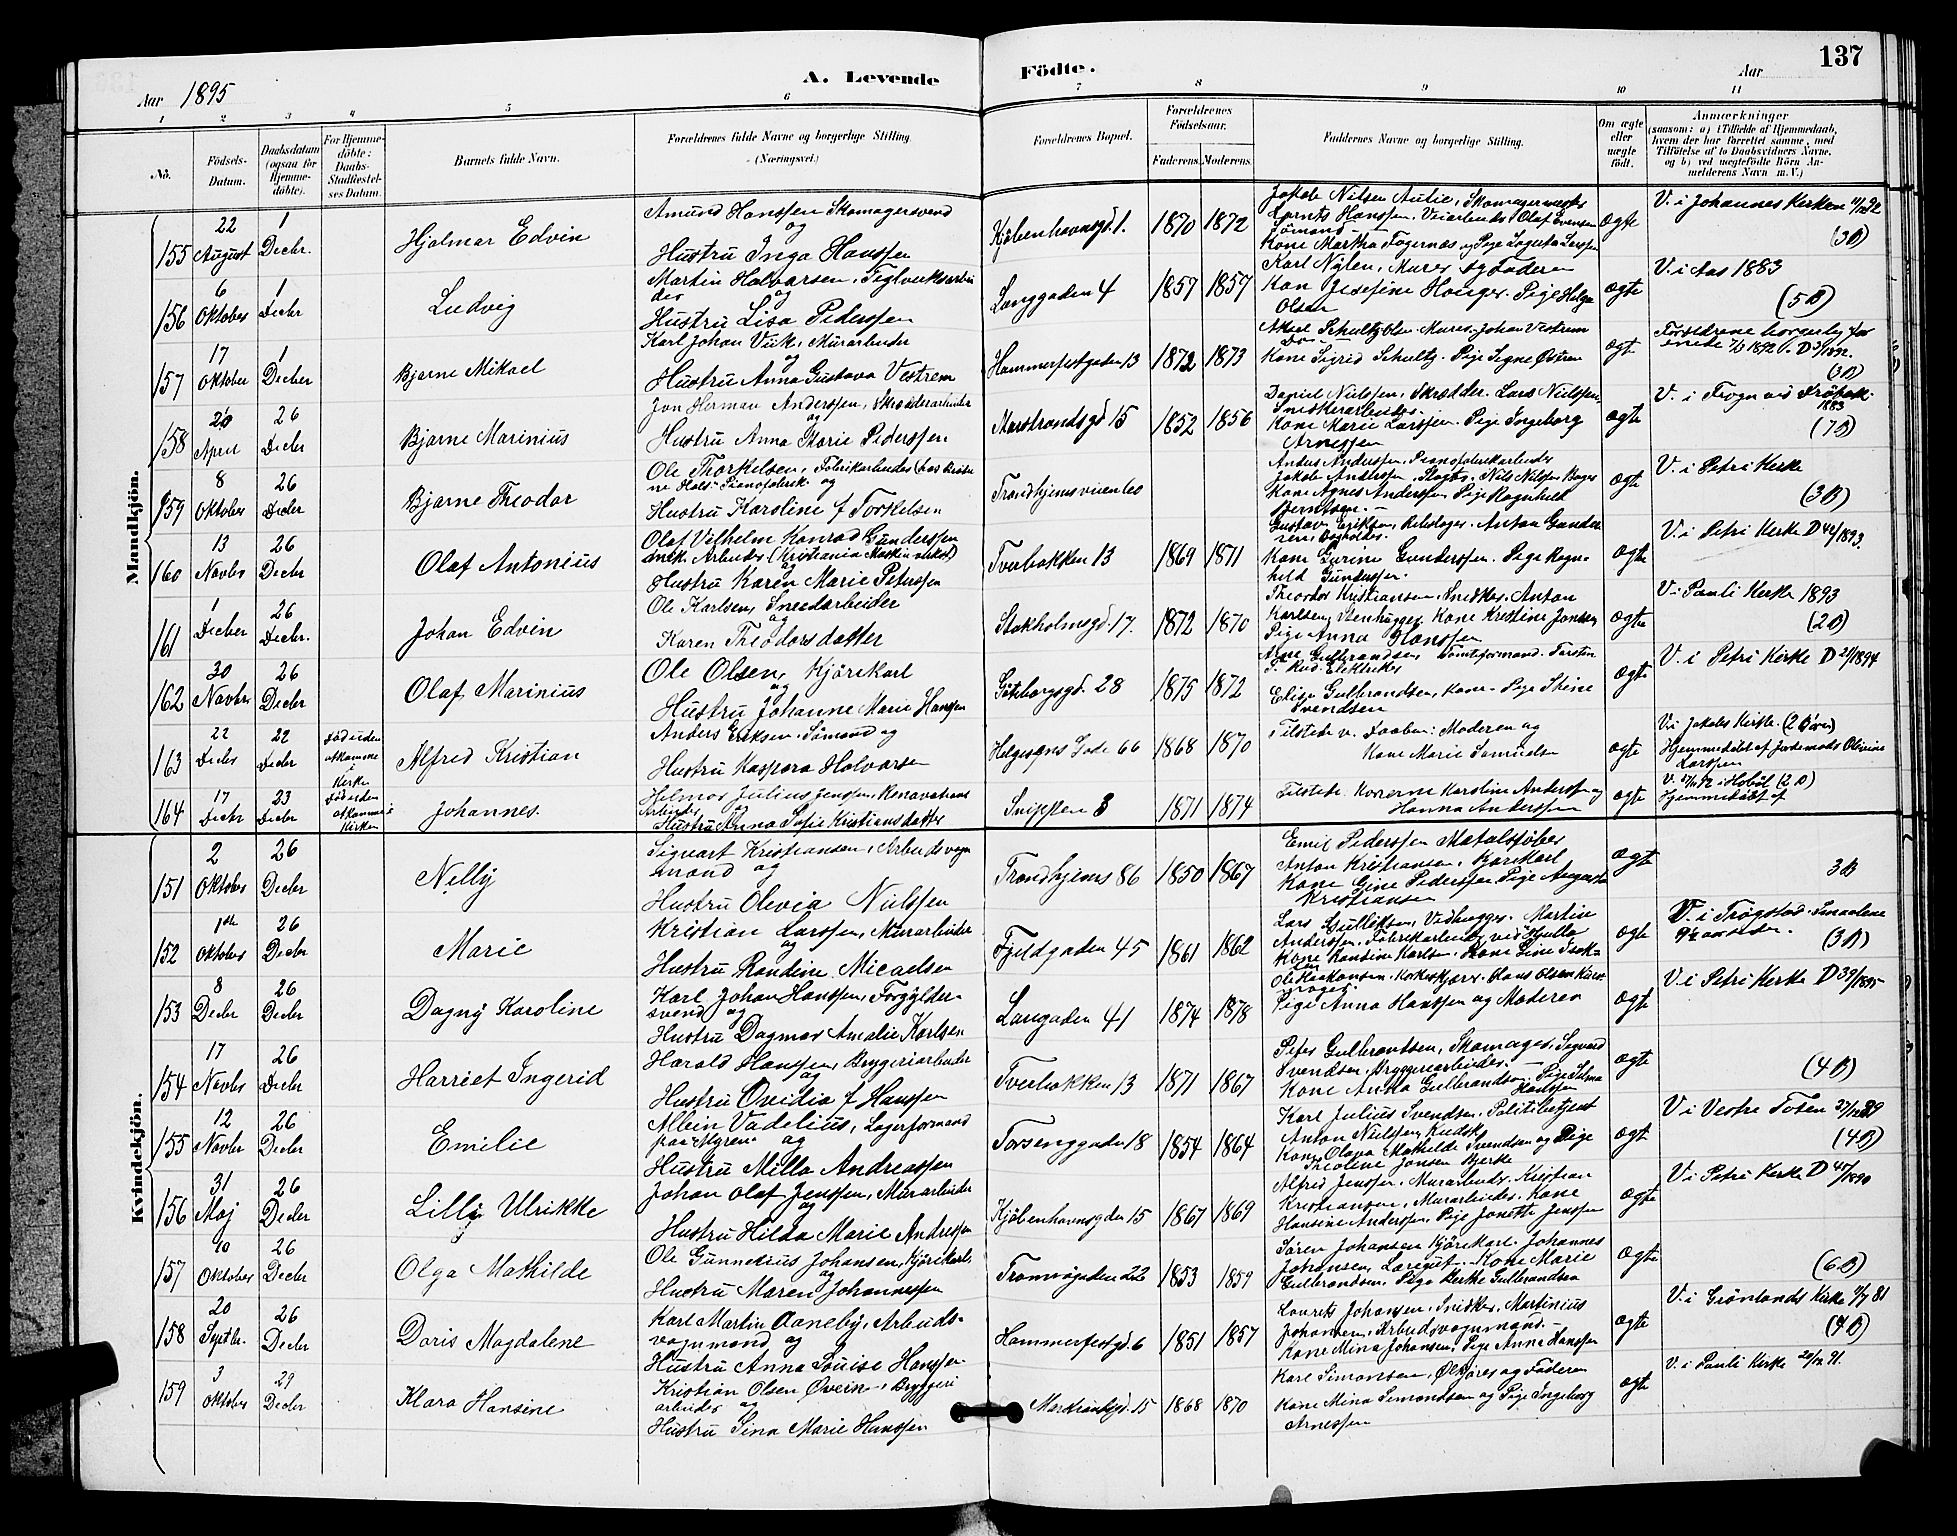 137
A. Levende Födte.
Aar 1895
Aar
1 2 3 4 5 6 7 8 9 10 11
No.
Födsels-Datum.
Daabsdatum (ogsaa for Hjemme-döbte).
For Hjemme-döbte: Daabs-Stadfæstel-ses Datum.
Barnets fulde Navn.
Forældrenes fulde Navne og borgerlige Stilling. (Næringsvei.)
Forældrenes Bopæl.
Forældrenes Födselsaar.
Faderens. Moderens.
Faddernes Navne og borgerlige Stilling.
Om ægte eller uægte födt.
Anmærkninger (saasom: a) i Tilfælde af Hjemmedaab, hvem der har forrettet samme, med Tilföielse af to Daabsvidners Navne, og b) ved uægtefödte Börn An-melderens Navn m. V.)
Mandkjön.
155 22 August 1 Decbr. Hjalmar Edvin
Amund Hanssen Skomagersvend
og
Hustru Inga Hanssen
Kjöbenhavnsgd. 1. 1870 1872
Jakob Nilsen Aulie, Skomagermester
Lornts Hanssen, Veiarbeider Olaf Evensen
Sömand
Kone Martha Fagernæs og Pige Laguta Larssen
ægte
V. i Johannes Kirken 11/12 92
(3B)
156 6 Oktober 1 Decbr Ludvig
Martin Halvorsen, Teglverksarbei
der og
Hustru Lisa Pedersen
Langgaden 4 1857 1857
Karl Nylen, Murer og Faderen
Kone Josefine Hauger. Pige Helga
Olsen
ægte
V. i Aas 1883
(5B)
157 17 Oktober 1 Decber Bjarne Mikael
Karl Johan Viik, Murarbeider
og
Hustru Anna Gustava Vestrem
Hammerfestgaden 13 1872 1873
Schultz Murer. Johan Vestrem
Kone Sigrid Schultz. Pige Signe Östrem
ægte
Forældrene borgerlig for
enede 1892.
(3B)
158 20 April 26 Decbr Bjarne Marinius
Jon Herman Anderssen, Skræderarbeider
og
Hustru Anna Marie Pederssen
Marstrandsgd 15 1852 1856
Daniel Nielssen, Skrædder. Lars Nielssen,
Snedkerarbeider.
Kone Marie Larssen. Pige Ingeborg
Arnessen
ægte
V. i Frogn ved Dröbak.
1883
(7B)
159 8 Oktober 26 Decbr Bjarne Theodor
Ole Thorkelsen, Fabrikarbeider (hos Brödre
ne Hals Pianofabrik og
Hustru Karoline f Torkelsen
Trondhjemsveien 60
Anders Anderssen, Pianofabrikarbeider
Jakob Anderssen, Slagter. Nils Nilsen Bager
Kone Agnes Anderssen Pige Ragnhild
Berntsen.
ægte
V. i Petri Kirke
(3B)
160 13 Novbr 26 Decbr Olaf Antonius
Olaf Vilhelm Konrad Gunderssen
mek. Arbeider (Kristiania Mekin verkst)
og
Hustru Karen Marie Peterssen
Tverbakken 13 1869 1871
Gustav Eriksen, Rebslager. Anton Gunder
sen, Bogholder.
Kone Gurine Gunderssen. Pige Ragn-
hild Gunderssen.
ægte
V. i Petri Kirke D 44/1893.
161 1 Decber 26 Decbr. Johan Edvin
Ole Karlsen, Smedarbeider
og
Karen Theodorsdatter
Stokholmsgd. 17. 1872 1870
Theodor Kristiansen, Snedker. Anton
Karlsen, Stenhugger, Kone Kristine Jonsen,
Pige Anna Hanssen
ægte
V. i Pauli Kirke 1893
(2B)
162 30 Novbr 26 Decbr Olaf Marinius
Ole Olsen, Kjörekarl
og
Hustru Johanne Marie Hanssen
Göteborgsgd. 28 1875 1872
Arne Gulbrandsen, Tomteformand. Torsten
T. Rud. Elektriker
Elise Gulbrandsen, Kone. Pige Stine
Svendsen
ægte
V. i Petri Kirke D 21/1894
163 22 Decbr 22 Decbr Död uden at komme i Kirke Alfred Kristian
Anders Eriksen, Sömand og
Hustru Kaspara Halvorsen
Helgesens Gade 66 1868 1870
Tilstede v. Daaben: Moderen og
Kone Marie Samuelsen
ægte
V. i Jakobs Kirke. (2 Börn)
Hjemmedöbt af Jordemoder Olivine
Larssen
164 17 Decbr 23 Decbr Död uden at komme i Kirken Johannes.
Hilmar Julius Jenssen, Renovations
Arbeider og
Hustru Anna Sofie Kristiansdatter
Snippen 3 1871 1874
Tilstede: Konerne Karoline Anderssen og
Hanna Anderssen
ægte
V. i Hoböl (2B)
Hjemmedöbt af
Kvindekjön.
151 2 Oktober 26 Decbr Nelly
Sigvart Kristiansen, Arbeidsvogn
mand og
Hustru Olevia Nielssen
Trondhjems 86 1850 1867
Emil Pederssen Metalstöber
Anton Kristiansen, Kjörekarl
Kone Gine Pedersen, Pige Augusta
Kristiansen
ægte
3B
152 1ste Oktober 26 Decbr Marie
Kristian Larssen, Murarbeider
og
Hustru Randine Micaelsen
Fjeldgaden 45 1861 1862
Lars Gulliksen, Vedhugger. Martin
Anderssen, Fabrikarbeider ved Hjula
Kone Randine Karlsen. Kone Line Isak-
sen
ægte
V. i Trögstad Smaalene
9½ aar siden.
(3B)
153 8 Decbr 26 Decbr Dagny Karoline
Karl Johan Hanssen, Forgylder-
svend og
Hustru Dagmar Amalie Karlsen
Langaden 41 1874 1878
Ole Haakonsen, Korkeskjærer. Hans Olsen Kurv
mager.
Pige Anna Hanssen og Moderen
ægte
V. i Petri Kirke D 39/1895
154 17 Novbr 26 Decbr Harriet Ingerid
Harald Hanssen, Bryggeriarbeider
og
Hustru Ovidia f Hanssen
Tverbakken 13 1871 1867
Peter Gulbrandsen, Skomager. Sigvard
Svendsen, Bryggeriarbeider.
Kone Anna Gulbrandsen. Pige Selma
Hanssen
ægte
(4B)
155 12 Novbr 26 Decbr Emilie
Albin Vadelius, Lagerformand
paa Myren og
Hustru Milla Andreassen
Torsenggaden 18 1854 1864
Karl Julius Svendsen, Politibetjent
Anton Nielssen, Kudsk
Kone Olava Mathilde Svendsen og Pige
Theoline Jonsen Bjerke
ægte
V i Vestre Toten 27/12 89
(4B)
156 31 Maj 26 Decbr Lilly Ulrikke
Johan Olaf Jenssen, Murarbeider
og
Hustru Hilda Marie Andressen
Kjöbenhavnsgden 15 1867 1869
Alfred Jenssen, Murarbeider. Kristian
Kristiansen, Murarbeider. Kone
Hansine Anderssen, Pige Jonette Jenssen
ægte
V i Petri Kirke D 45/1890
157 10 Oktober 26 Decbr Olga Mathilde
Ole Gunnelius Johansen, Kjörekarl
og
Hustru Maren Johannessen
Tromsögaden 22 1853 1859
Sören Johansen Kjörekarl. Johannes
Johansen, Lörgut. Kone Marie
Gulbrandsen. Pige Berthe Gulbrandsen
ægte
(6B)
158 20 Septbr. 26 Decbr Doris Magdalene
Karl Martin Aaneby, Arbeids-
vognmand og
Hustru Anna Louise Hanssen
Hammerfestgd. 6 1851 1857
Lauritz Johansen, Snidker, Martinius
Johansen, Arbeidsvognmand.
Kone Mina Johansen. Pige Anne Hanssen
ægte
V. i Grönlands Kirke 81
(4B)
159 3 Oktober 29 Decbr Klara Hansine
Kristian Olsen Överen, Bryggeri
arbeider og
Hustru Sina Marie Hanssen
Marstrandsgd. 15 1868 1870
Karl Simonsen, Ölkjörer og Faderen
Kone Mina Simondsen og Pige Ingeborg
Arnessen
ægte
V. i Pauli Kirke 20/12 91.